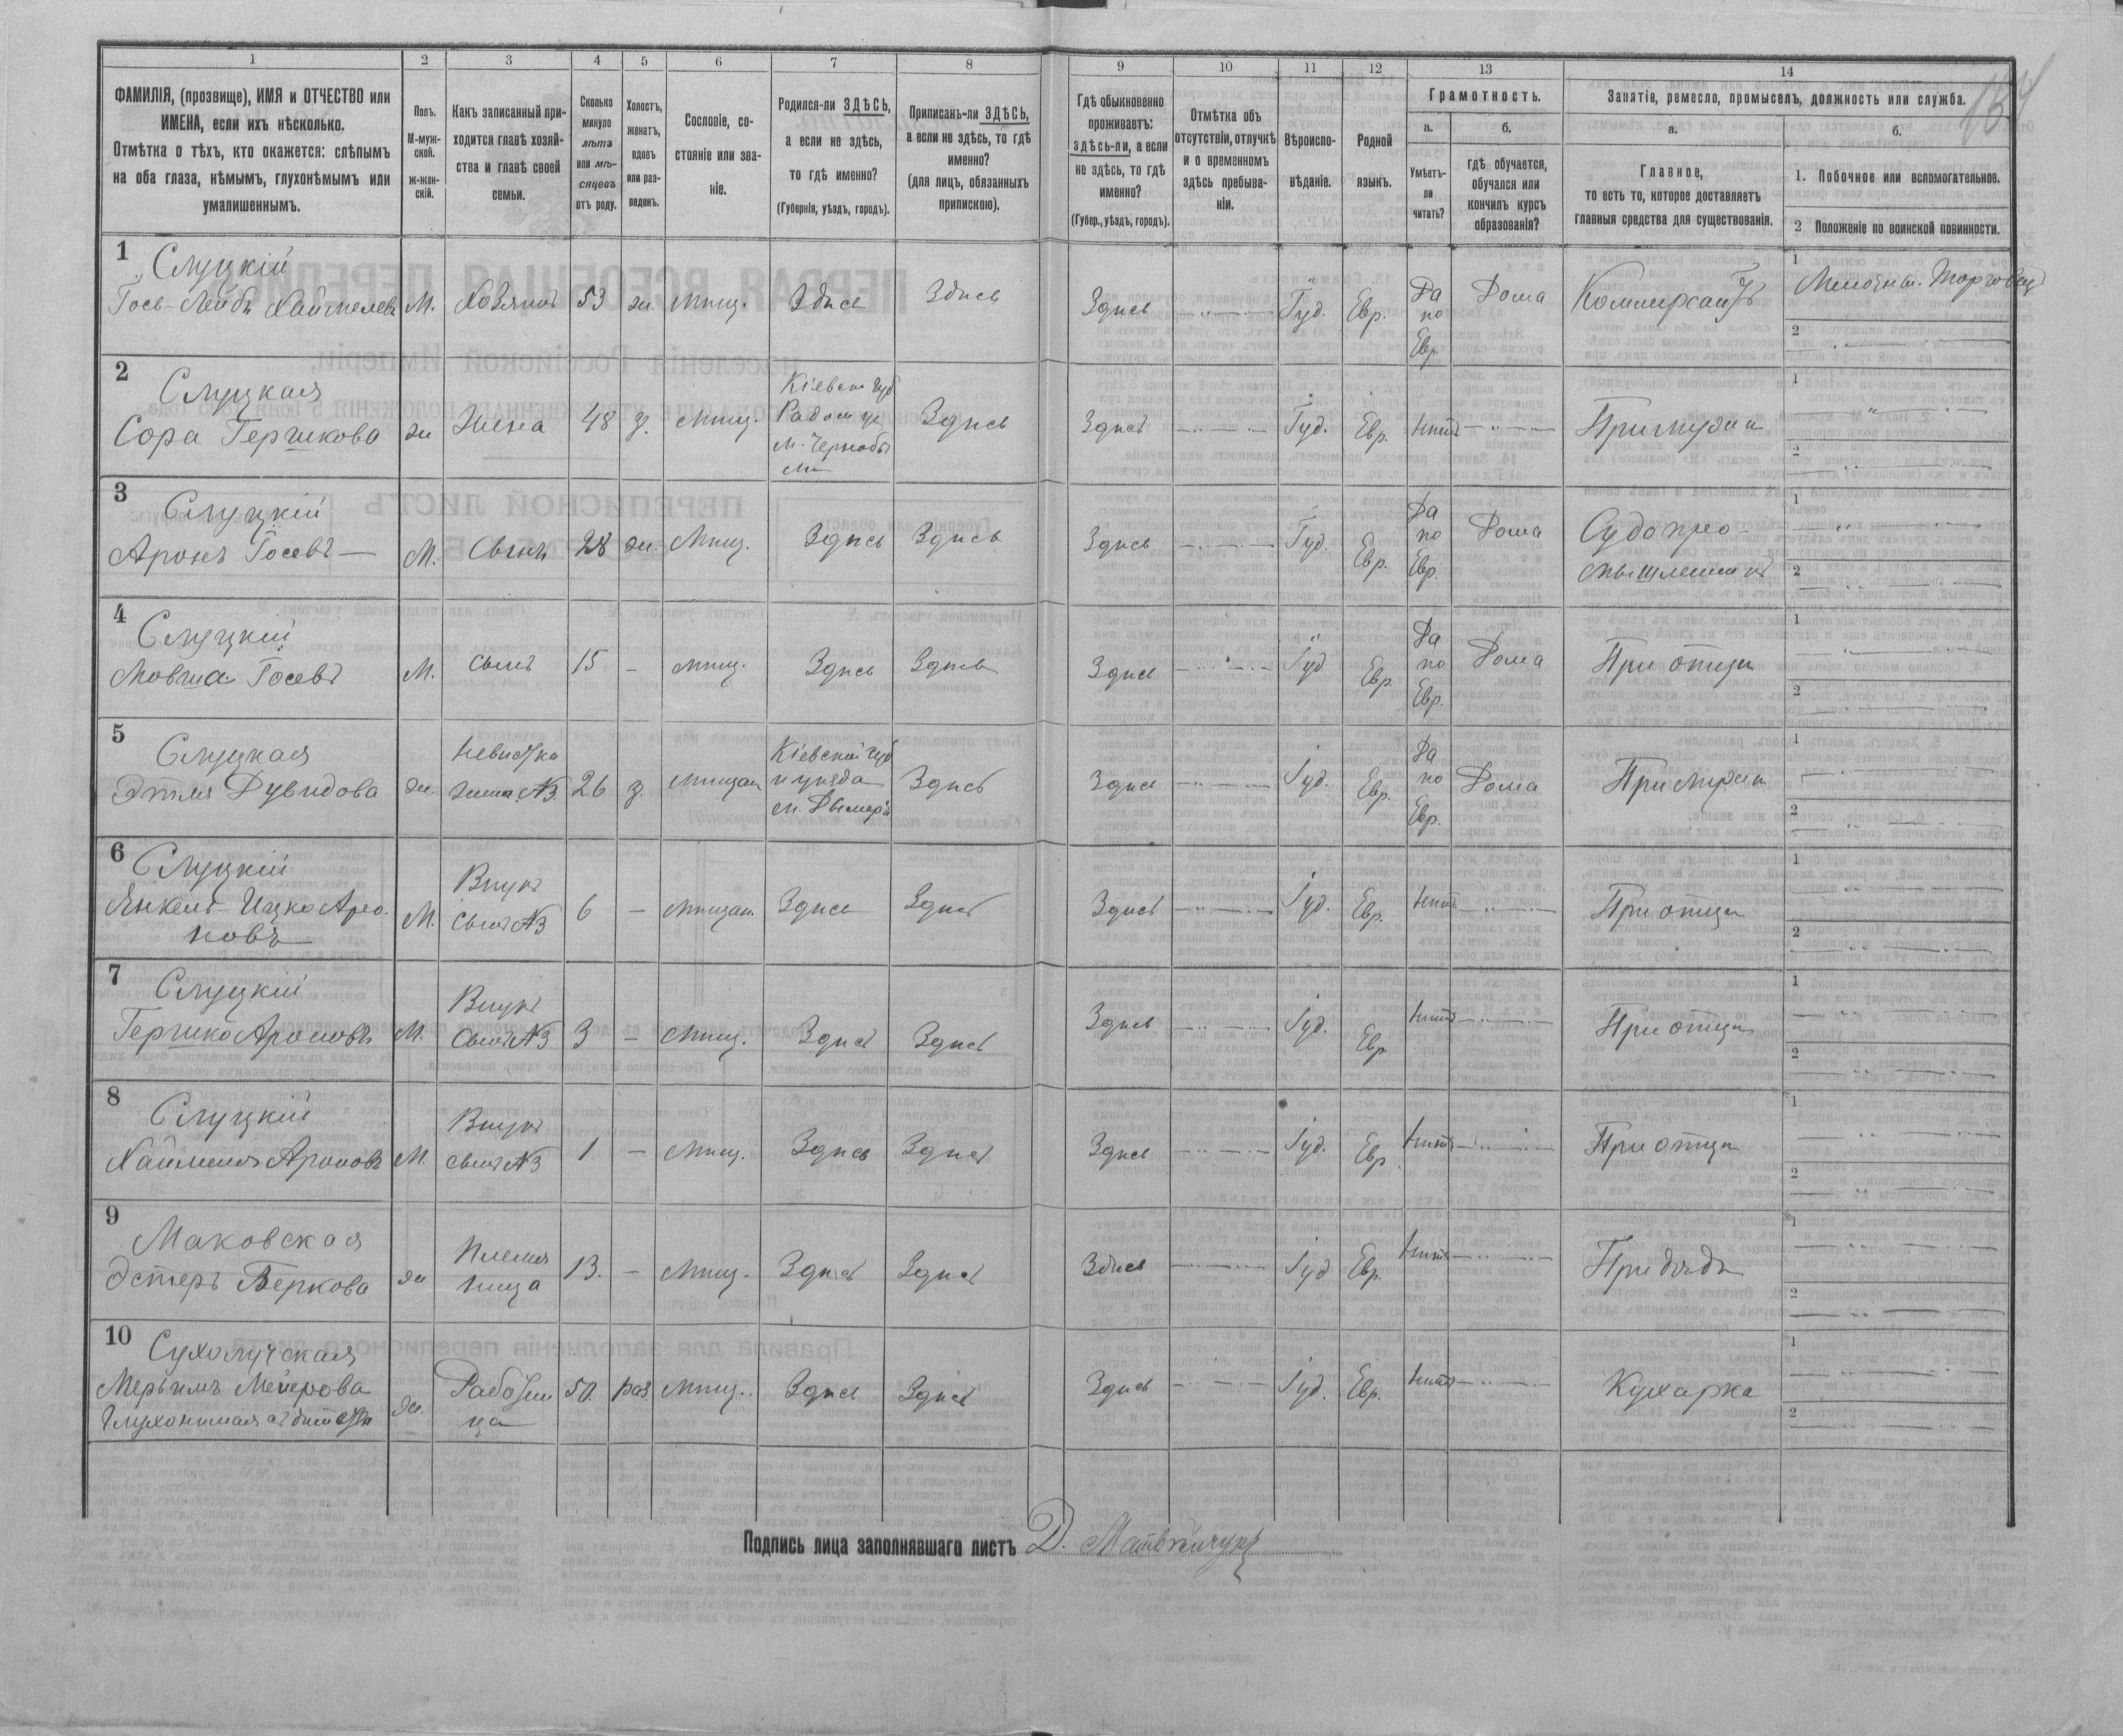 164
1 2 3 4 5 6 7 8 9 10 11 12 13 14
ФАМИЛІЯ, (прозвище), ИМЯ и ОТЧЕСТВО или
ИМЕНА, если ихъ нѣсколько.
Отмѣтка о тѣхъ, кто окажется: слѣпымъ
на оба глаза, нѣмымъ, глухонѣмымъ или
умалишеннымъ.
Полъ.
М-муж-
ской.
ж-жен-
скій.
Какъ записанный при-
ходится главѣ хозяй-
ства и главѣ своей
семьи.
Сколько
минуло
лѣтъ
или мѣ-
сяцевъ
отъ роду.
Холостъ,
женатъ,
вдовъ
или раз-
веденъ.
Сословіе, со-
стояніе или зва-
ніе.
Родился-ли ЗДѢСЬ,
а если не здѣсь,
то гдѣ именно?
(Губернія, уѣздъ, городъ).
Приписанъ-ли ЗДѢСЬ,
а если не здѣсь, то гдѣ
именно?
(для лицъ, обязанныхъ
припискою).
Гдѣ обыкновенно
проживаетъ:
здѣсь-ли, а если
не здѣсь, то гдѣ
именно?
(Губер., уѣздъ, городъ).
Отмѣтка объ
отсутствіи, отлучкѣ
и о временномъ
здѣсь пребыва-
ніи.
Вѣроиспо-
вѣданіе.
Родной
языкъ.
Грамотность.
а.
Умѣетъ-
ли
читать?
б.
гдѣ обучается,
обучался или
кончилъ курсъ
образованія?
Занятіе, ремесло, промыселъ, должность или служба.
а.
Главное,
то есть то, которое доставляетъ
главныя средства для существованія.
б.
1. Побочное или вспомогательное.
2 Положеніе по воинской повинности.
1
Слуцкій
Іось-Лейбъ Хаимелевъ М. Хозяинъ 53 ж. Мѣщ. Здѣсь Здѣсь Здѣсь Іуд. Евр. Да по Евр. Дома Коммерсантъ
1 Мелочн. Торговец
2
2
Слуцкая
Сора Гершкова ж Жена 48 з. Мѣщ.
Кіевск Губ
Радом уе
м. Чернобы
ля
Здѣсь Здѣсь Іуд. Евр. Нѣтъ При мужѣ
1
2
3
Слуцкій
Аронъ Іосевъ М. Сынъ 28 ж. Мѣщ. Здѣсь Здѣсь Здѣсь Іуд. Евр. Да по Евр. Дома
Судопро-
мышленникъ
1
2
4
Слуцкій
Мовша Іосевъ М. Сынъ 15 - Мѣщ. Здѣсь Здѣсь Здѣсь Іуд Евр. Да по Евр. Дома При отцѣ
1
2
5
Слуцкая
Этля Дувидова ж.
Невѣстка
жена №3
26 з. Мѣщан
Кіевской Губ
и уѣзда
м. Дымеръ
Здѣсь Здѣсь Іуд. Евр. Да по Евр. Дома При мужѣ
1
2
6
Слуцкій
Янкель-Ицко Аро-
новъ
М.
Внукъ
Сынъ №3
6 - Мѣщан. Здѣсь Здѣсь Здѣсь Іуд. Евр. Нѣтъ При отцѣ
1
2
7
Слуцкій
Гершко Ароновъ М.
Внукъ
Сынъ №3
3 - Мѣщ. Здѣсь Здѣсь Здѣсь Іуд. Евр Нѣтъ При отцѣ
1
2
8
Слуцкій
Хаимель Ароновъ М.
Внукъ
Сынъ №3
1 - Мѣщ. Здѣсь Здѣсь Здѣсь Іуд. Евр. Нѣтъ При отцѣ
1
2
9
Маковская
Эстеръ Беркова ж
Племян
ница
13. - Мѣщ. Здѣсь Здѣсь Здѣсь Іуд Евр. Нѣтъ При дядѣ
1
2
10
Сухолучская
Меръимъ Меерова
Глухонѣмая съ дѣтства
ж.
Работни
ца
50. раз. Мѣщ. Здѣсь Здѣсь Здѣсь Іуд. Евр. Нѣтъ Кухарка
1
2
Подпись лица заполнявшаго листъ Д. Матвѣйчукъ